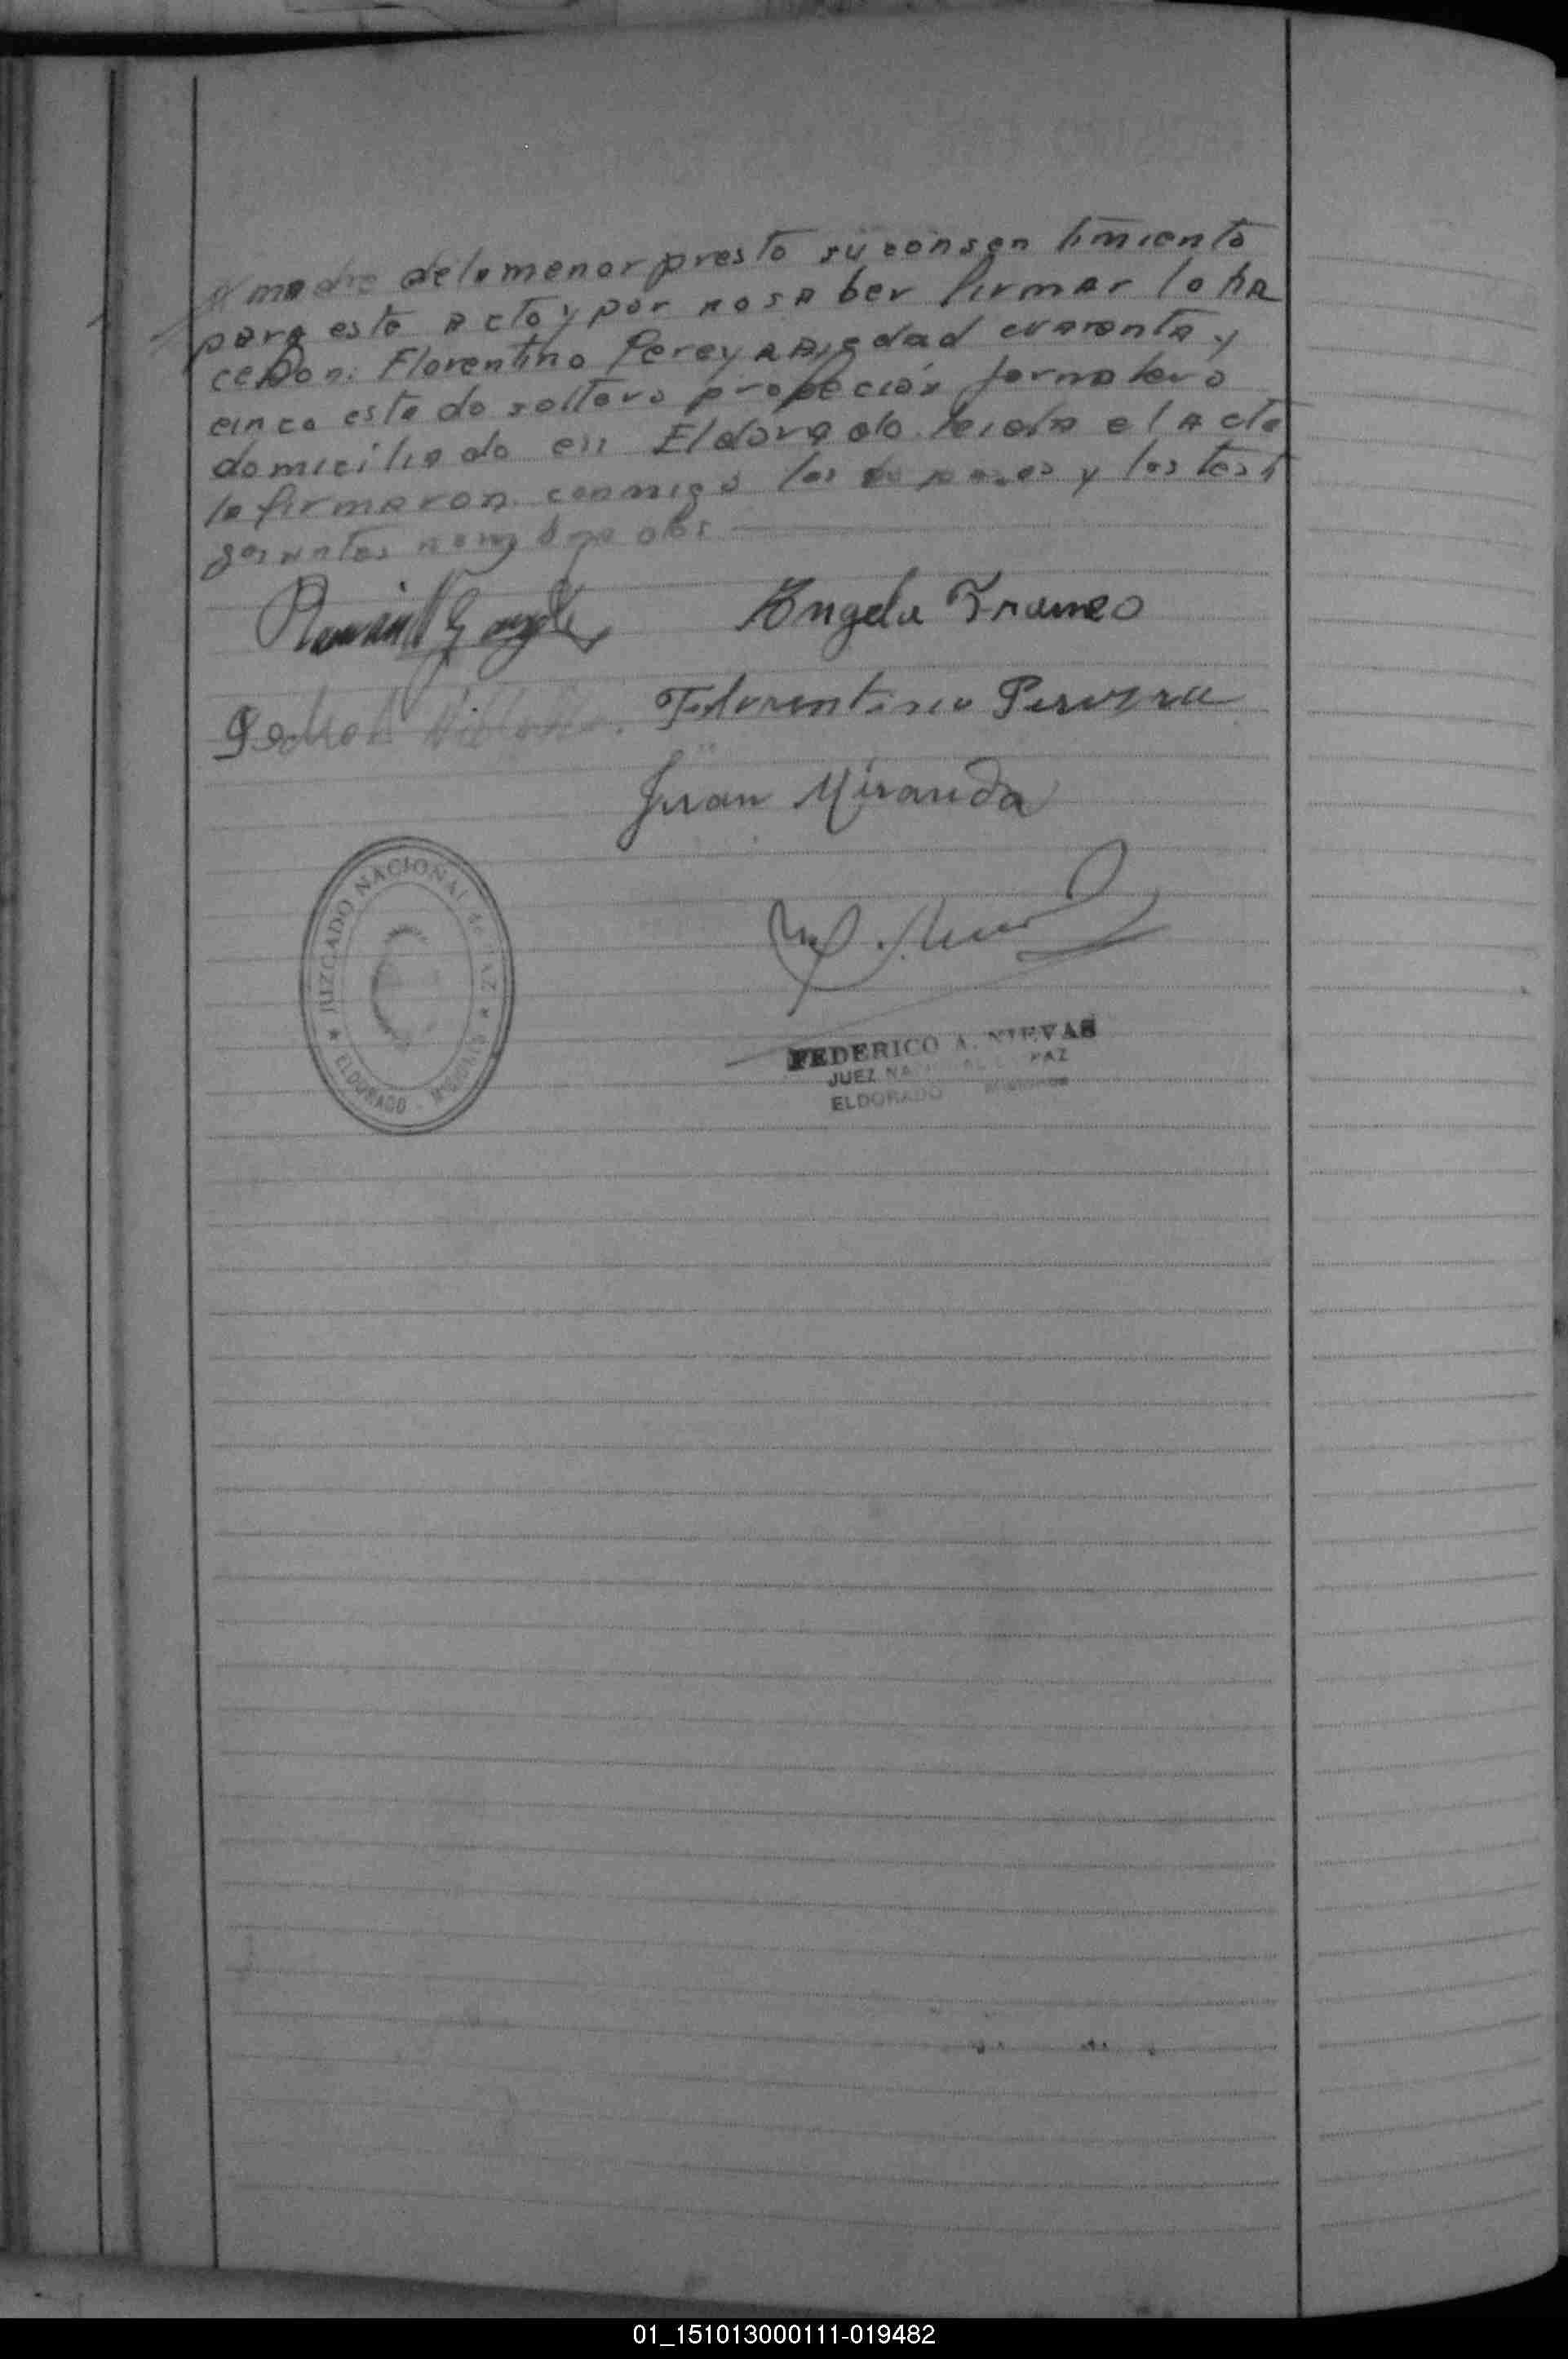 madre de la menor presto su consentimiento
para este acto y por no saber firmar lo ha
ce Don: Florentino Pereyra, edad cuarenta y
cinco estado soltero profeción jornalero
domiciliado en Eldorado. Leida el acta
la firmaron conmigo los esposos y los testi
gos antes nombrados
Angela Franco
Pedro Florentino Pereyra
Juan Miranda
JUZGADO NACIONAL de PAZ
ELDORADO - MISIONES
FEDERICO A. NIEVAS
JUEZ NACIONAL DE PAZ
ELDORADO Misiones
01_151013000111-019482